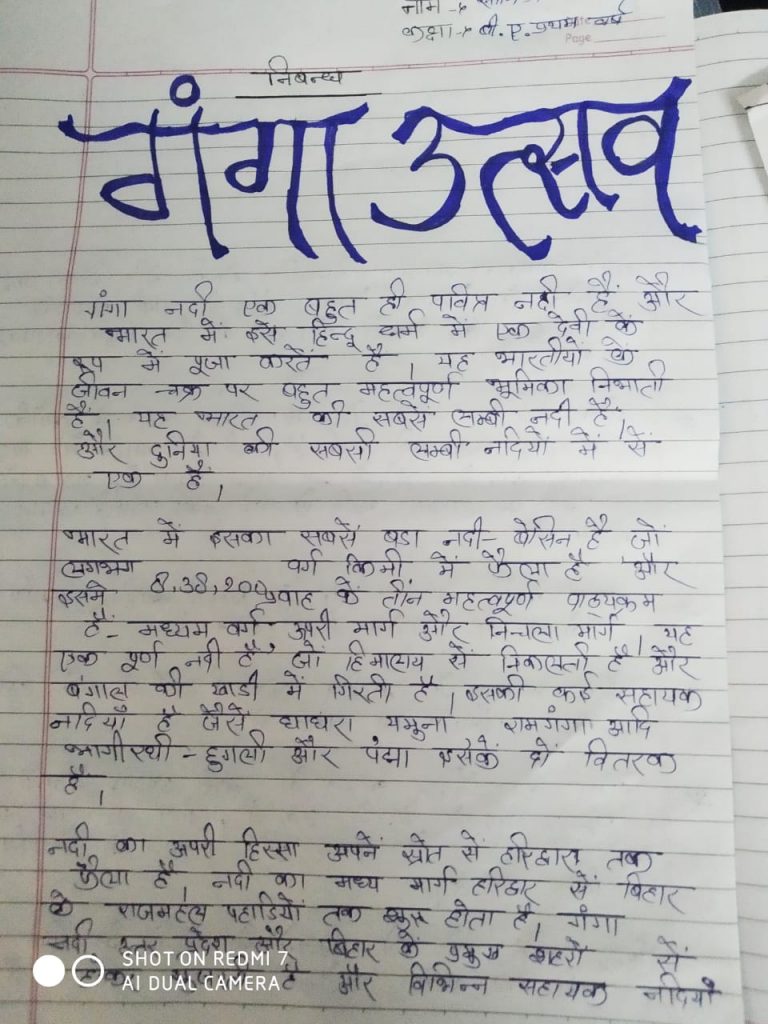 नाम -
कक्षा - बी. ए. प्रथम वर्ष
Page
निबन्ध
गंगा उत्सव
गंगा नदी एक बहुत ही पवित्र नदी हैं और
भारत में इसे हिन्दू धर्म में एक देवी के
रूप में पूजा करतें है। यह भारतीयों के
जीवन चक्र पर बहुत महत्वपूर्ण भूमिका निभाती
है। यह भारत की सबसे लम्बी नदी है,
और दुनिया की सबसी लम्बी नदियों में से
एक हैं।
भारत में इसका सबसें बडा नदी - बेसिन है जों
लगभग वर्ग किमी में फैला है और
इसमें 8,38,200 प्रवाह के तीन महत्वपूर्ण पाठ्यक्रम
हैं - मध्यम वर्ग ऊपरी मार्ग और निचला मार्ग। यह
एक पूर्ण नदी है जों हिमालय सें निकलती है और
बंगाल की खाडी में गिरती है। इसकी कई सहायक
नदियाँ है जैसें घाघरा यमुना रामगंगा आदि
भागीरथी - हुगली और पंद्मा इसकें दों वितरक
हैं।
नदी का ऊपरी हिस्सा अपनें स्रोत सें हरिद्वार तक
फैला है, नदी का मध्य मार्ग हरिद्वार सें बिहार
के राजमहल पहाडियों तक होता है, गंगा
नदी उत्तर प्रदेश और बिहार के प्रमुख शहरों सें
है और विभिन्न सहायक नदियाँ
SHOT ON REDMI 7
AI DUAL CAMERA